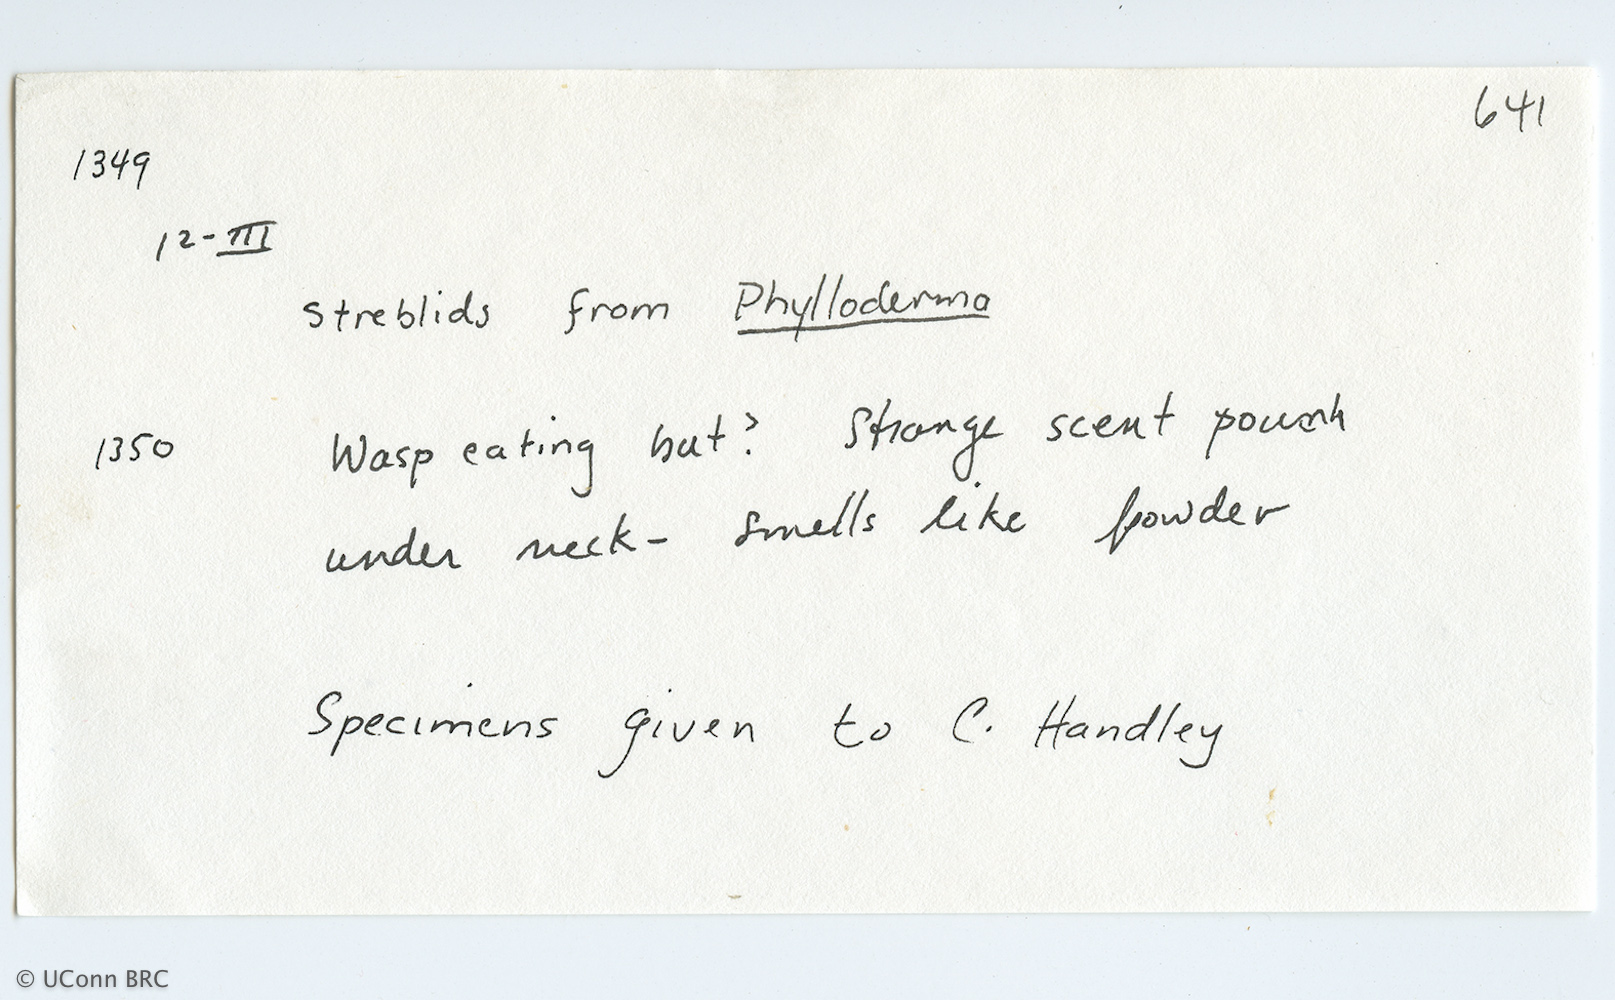 641
1349
12-III
Streblids from Phylloderma
1350 Wasp eating bat? Strange scent pouch
under neck- smells like powder
Specimens given to C. Handley
© UConn BRC